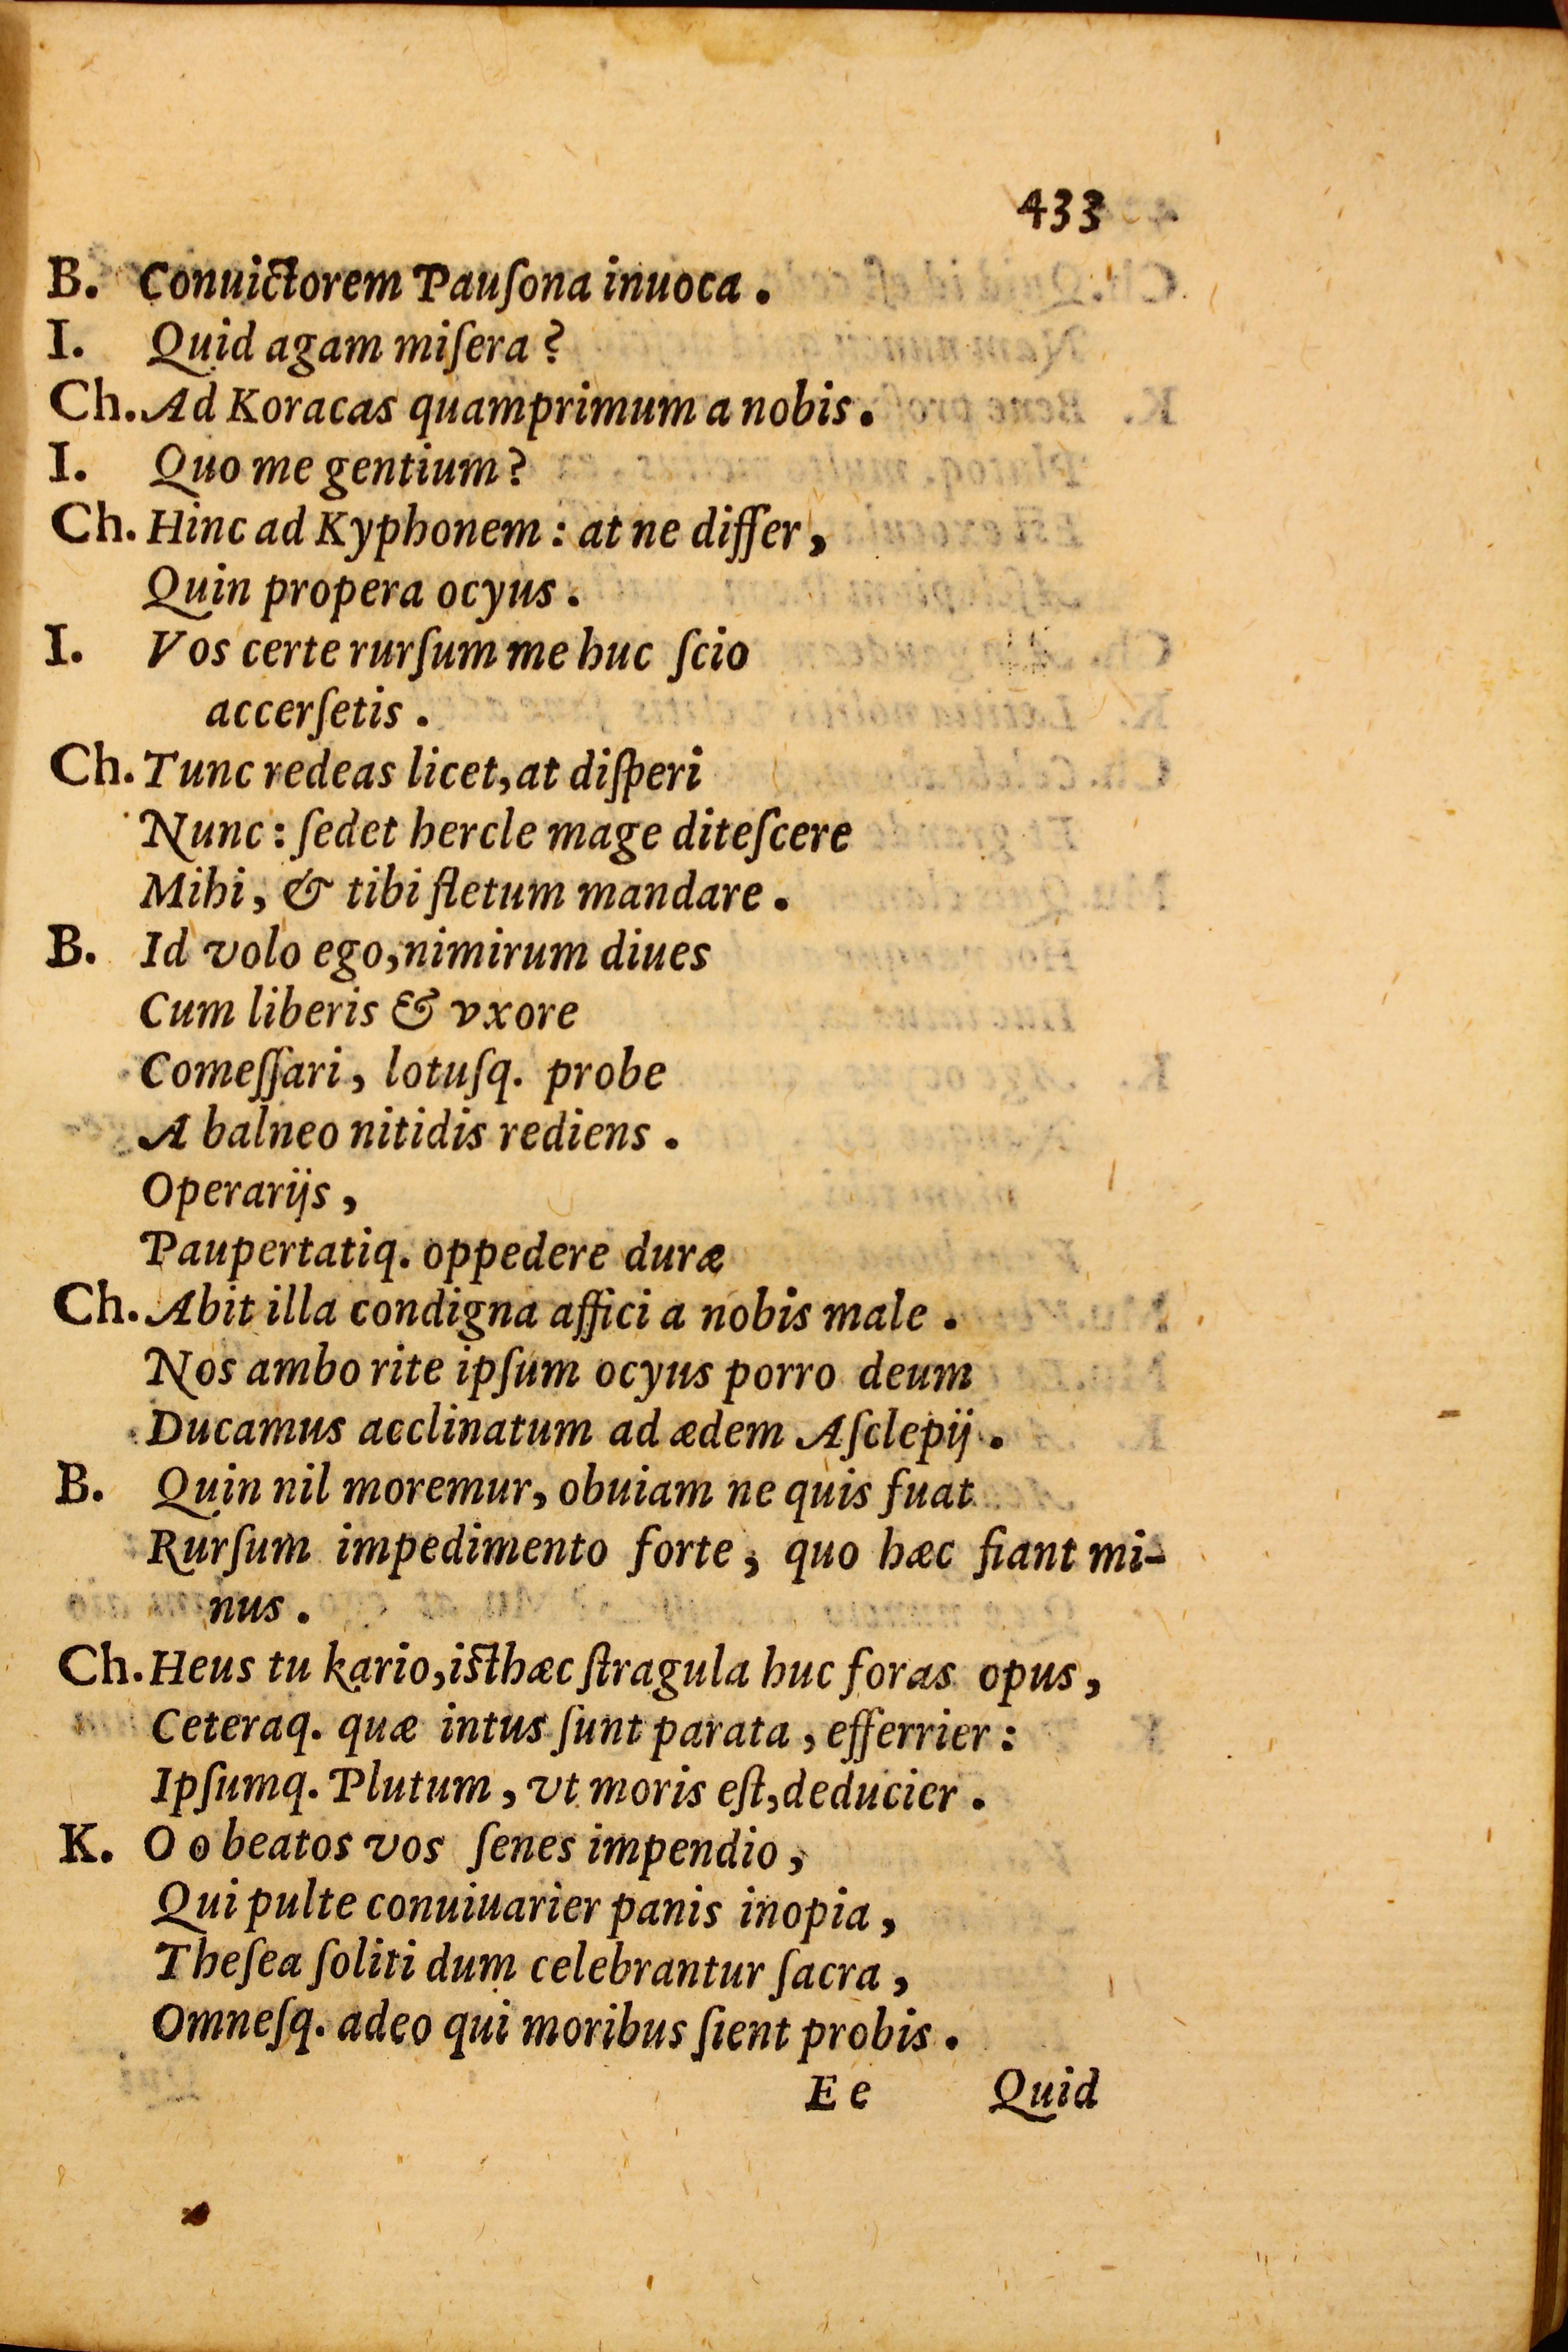 433
B. Conuictorem Pauſona inuoca.
I. Quid agam miſera?
Ch. Ad Koracas quamprimum a nobis.
I. Quo me gentium?
Ch. Hinc ad Kyphonem: at ne differ,
Quin propera ocyus.
I. Vos certe rurſum me huc ſcio
accerſetis.
Ch. Tunc redeas licet, at diſperi
Nunc: ſedet hercle mage diteſcere
Mihi, & tibi fletum mandare.
B. Id volo ego, nimirum diues
Cum liberis & vxore
Comeſſari, lotuſq. probe
A balneo nitidis rediens.
Operarijs,
Paupertatiq. oppedere duræ
Ch. Abit illa condigna affici a nobis male.
Nos ambo rite ipſum ocyus porro deum
Ducamus acclinatum ad ædem Aſclepij.
B. Quin nil moremur, obuiam ne quis fuat
Rurſum impedimento forte, quo hæc fiant mi-
nus.
Ch. Heus tu kario, iſthæc ſtragula huc foras opus,
Ceteraq. quæ intus ſunt parata, efferrier:
Ipſumq. Plutum, vt moris eſt, deducier.
K. O o beatos vos ſenes impendio,
Qui pulte conuiuarier panis inopia,
Theſea ſoliti dum celebrantur ſacra,
Omneſq. adeo qui moribus ſient probis.
E e Quid